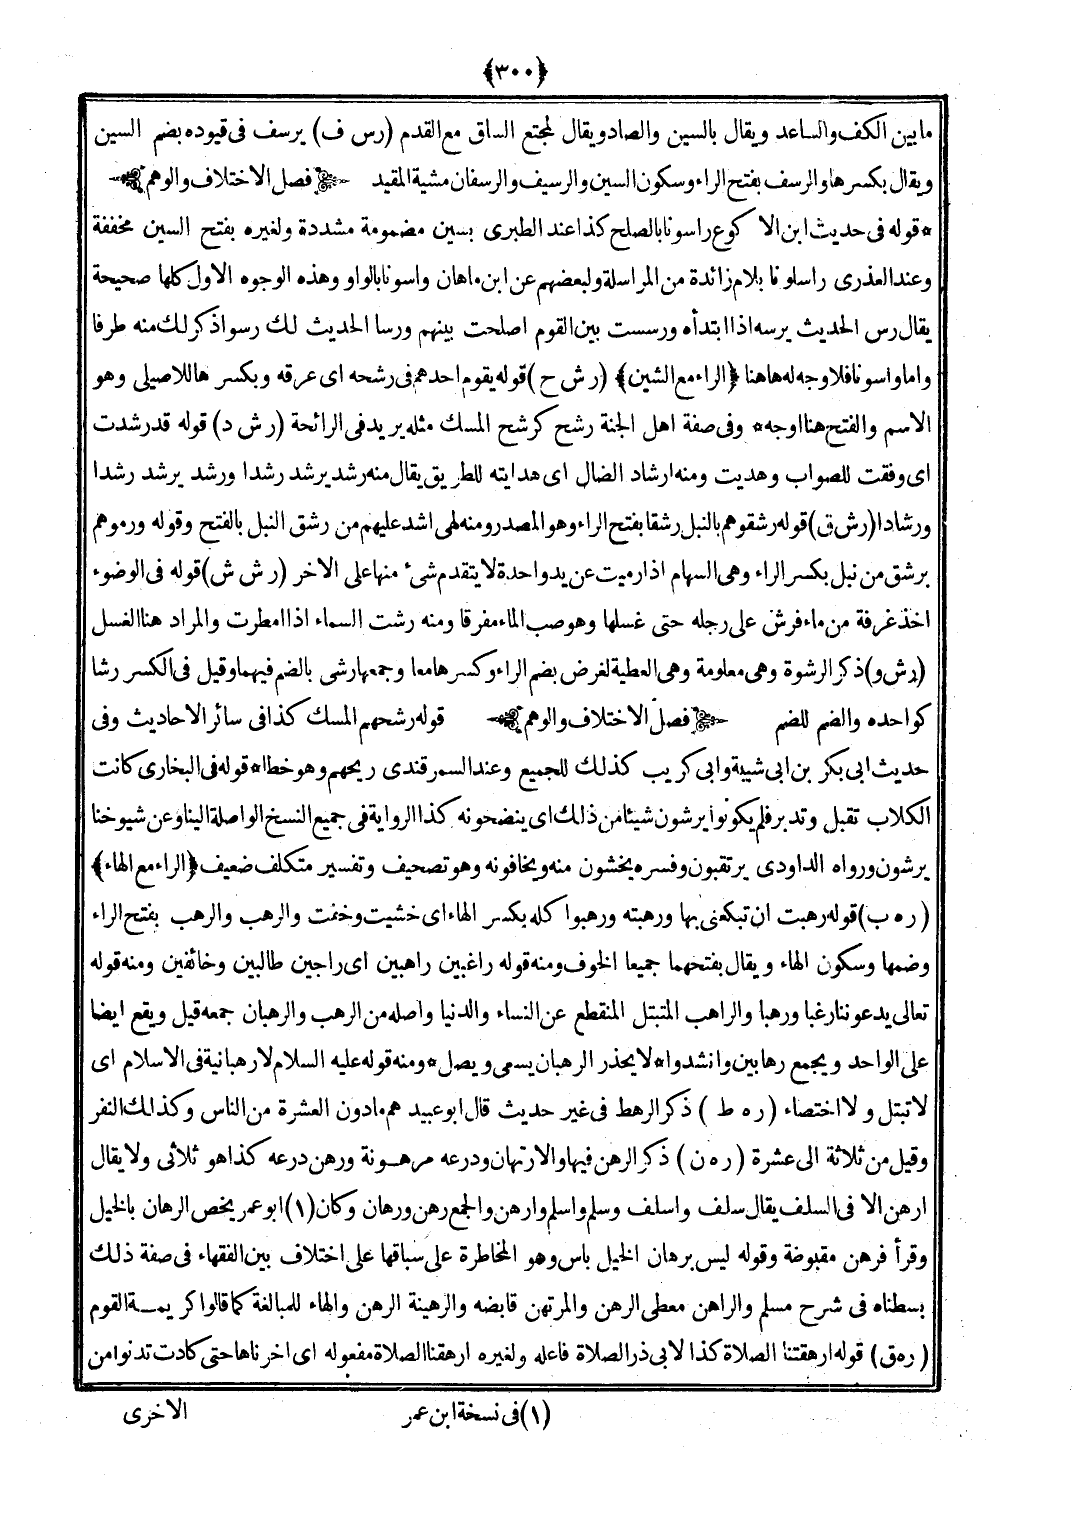 ﴿٣٠٠﴾
مابين الكف والساعد ويقال بالسين والصاد ويقال لمجتمع الساق مع القدم (رس ف) يرسف فى قيوده بضم السين
ويقال بكسرها والرسف بفتح الراء وسكون السين والرسيف والرسفان مشية المقيد فصل الاختلاف والوهم
* قوله فى حديث ابن الاكوع راسونا بالصلح كذا عند الطبرى بسين مضمومة مشددة ولغيره بفتح السين مخففة
وعند العذرى راسلونا بلام زائدة من المراسلة ولبعضهم عن ابن ماهان واسونا بالواو وهذه الوجوه الاول كلها صحيحة
يقال رس الحديث يرسه اذا ابتدأه ورسست بين القوم اصلحت بينهم ورسا الحديث لك رسوا ذكر لك منه طرفا
واما واسونا فلاوجه له هاهنا ﴿الراء مع الشين﴾ (رش ح) قوله يقوم احدهم فى رشحه اى عرقه وبكسرها للاصيلى وهو
الاسم والفتح هنا اوجه * وفى صفة اهل الجنة رشح كرشح المسك مثله يريد فى الرائحة (رش د) قوله قد رشدت
اى وفقت للصواب وهديت ومنه ارشاد الضال اى هدايته للطريق يقال منه رشد يرشد رشدا ورشد يرشد رشدا
ورشادا (رش ق) قوله رشقوهم بالنبل رشقا بفتح الراء وهو المصدر ومنه لهى اشد عليهم من رشق النبل بالفتح وقوله ورموهم
برشق من نبل بكسر الراء وهى السهام اذا رميت عن يد واحدة لا يتقدم شىء منها على الاخر (رش ش) قوله فى الوضوء
اخذ غرفة من ماء فرش على رجله حتى غسلها وهو صب الماء مفرقا ومنه رشت السماء اذا امطرت والمراد هنا الغسل
(رش و) ذكر الرشوة وهى معلومة وهى العطية لغرض بضم الراء وكسرها معا وجمعها رشى بالضم فيهما وقيل فى الكسر رشا
كواحده والضم للضم فصل الاختلاف والوهم قوله رشحهم المسك كذا فى سائر الاحاديث وفى
حديث ابى بكر بن ابى شيبة وابى كريب كذلك للجميع وعند السمرقندى ريحهم وهو خطا * قوله فى البخارى كانت
الكلاب تقبل وتدبر فلم يكونوا يرشون شيئا من ذلك اى ينضحونه كذا الرواية فى جميع النسخ الواصلة الينا وعن شيوخنا
يرشون ورواه الداودى يرتقبون وفسره يخشون منه ويخافونه وهو تصحيف وتفسير متكلف ضعيف ﴿الراء مع الهاء﴾
(ره ب) قوله رهبت ان تبكعنى بها ورهبته ورهبوا كله بكسر الهاء اى خشيت وخفت والرهب والرهب بفتح الراء
وضمها وسكون الهاء ويقال بفتحهما جميعا الخوف ومنه قوله راغبين راهبين اى راجين طالبين وخائفين ومنه قوله
تعالى يدعوننا رغبا ورهبا والراهب المتبتل المنقطع عن النساء والدنيا واصله من الرهب والرهبان جمعه قيل ويقع ايضا
على الواحد ويجمع رهابين وانشدوا * لايحذر الرهبان يسمى ويصل * ومنه قوله عليه السلام لا رهبانية فى الاسلام اى
لا تبتل ولا اختصاء (ره ط) ذكر الرهط فى غير حديث قال ابو عبيد هم مادون العشرة من الناس وكذلك النفر
وقيل من ثلاثة الى عشرة (ره ن) ذكر الرهن فيها والارتهان ودرعه مرهونة ورهن درعه كذا هو ثلاثى ولا يقال
ارهن الا فى السلف يقال سلف واسلف وسلم واسلم وارهن والجمع رهن ورهان وكان (١) ابو عمر يخص الرهان بالخيل
وقرأ فرهن مقبوضة وقوله ليس برهان الخيل باس وهو المخاطرة على سباقها على اختلاف بين الفقهاء فى صفة ذلك
بسطناه فى شرح مسلم والراهن معطى الرهن والمرتهن قابضه والرهينة الرهن والهاء للمبالغة كما قالوا كريمة القوم
(ره ق) قوله ارهقتنا الصلاة كذا لابى ذر الصلاة فاعله ولغيره ارهقنا الصلاة مفعوله اى اخرناها حتى كادت تدنوا من
(١) فى نسخة ابن عمر
الاخرى